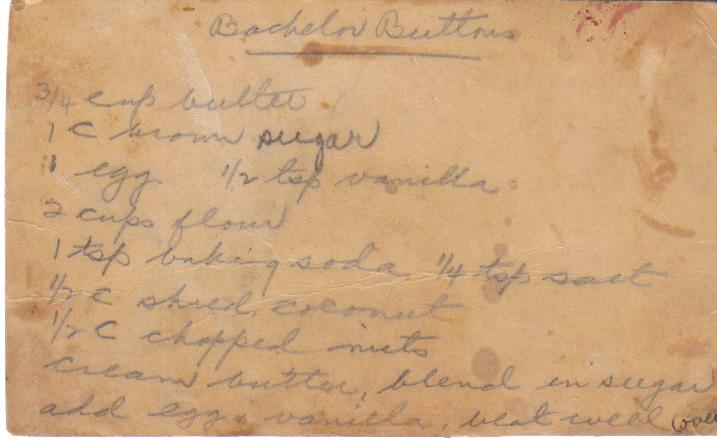 Bachelor Buttons
3/4 cup butter
1 C brown sugar
1 egg 1/2 tsp vanilla
2 cups flour
1 tsp baking soda 1/4 tsp salt
1/2 C shred. coconut
1/2 C chopped nuts
cream butter, blend in sugar
add egg & vanilla, beat well (over